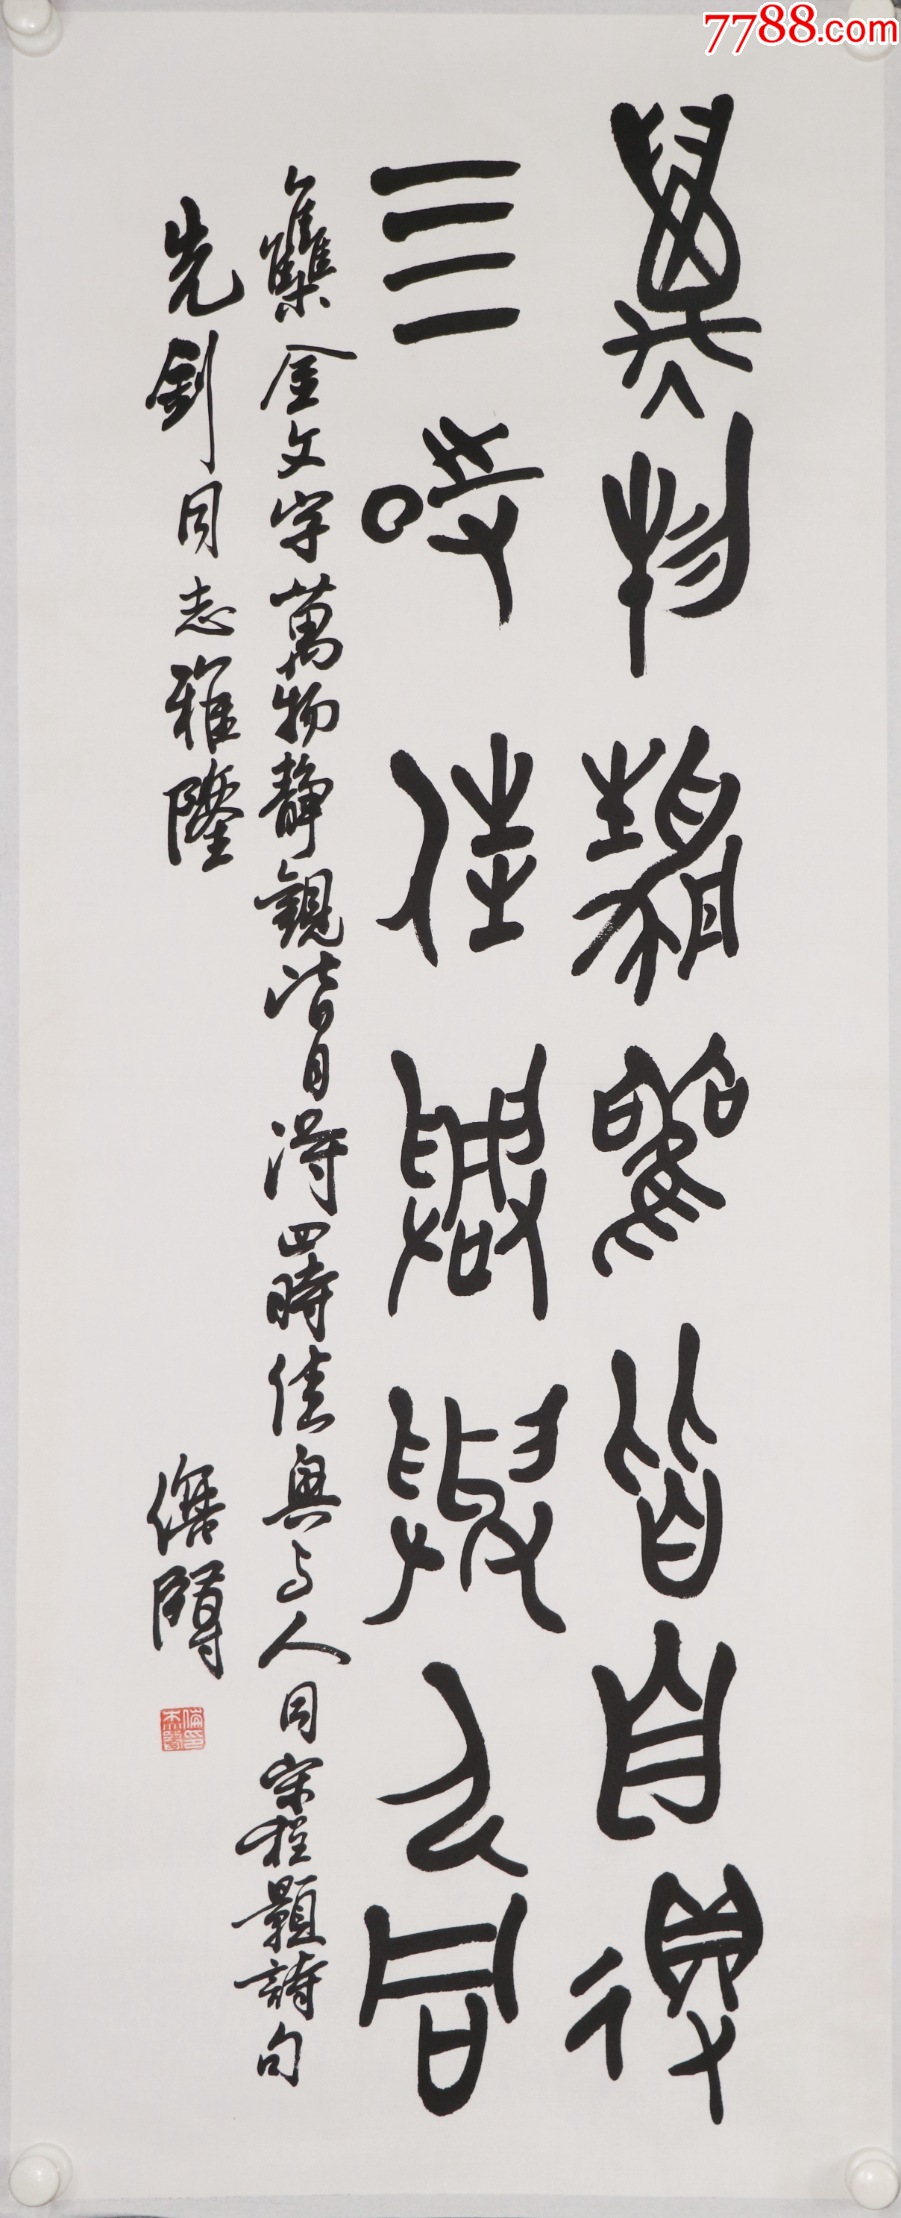 7788.com
萬物靜觀皆自得
三時佳興與人同
集金文字萬物靜觀皆自得四時佳興与人同宋程顥詩句
先剑同志雅鑒